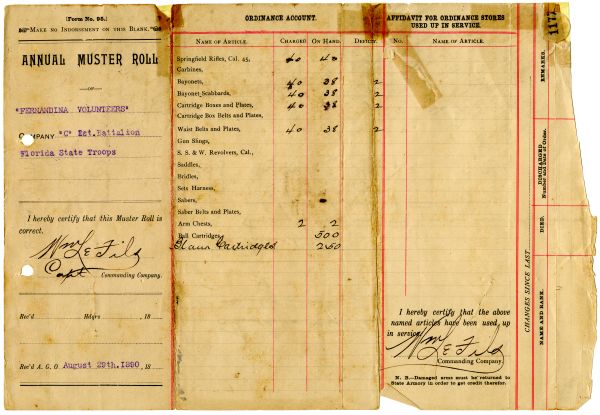 (Form No. 95.)
MAKE NO INDORSEMENT ON THIS BLANK.
ANNUAL MUSTER ROLL
—OF—
"FERNANDINA VOLUNTEERS"
COMPANY "C" Ist.Battalion
Florida State Troops
I hereby certify that this Muster Roll is
correct.
Wm L E Fild
Capt Commanding Company.
Rec'd Hdqrs , 18
Rec'd A. G. O August 29th.1890 , 18
ORDNANCE ACCOUNT.
NAME OF ARTICLE. CHARGED. ON HAND. DEFICIT.
Springfield Rifles, Cal. 45, 40 40
Carbines,
Bayonets, 40 38 2
Bayonet Scabbards, 40 38 2
Cartridge Boxes and Plates, 40 38 2
Cartridge Box Belts and Plates,
Waist Belts and Plates, 40 38 2
Gun Slings,
S. & W. Revolvers, Cal.,
Saddles,
Bridles,
Sets Harness,
Sabers,
Saber Belts and Plates,
Arm Chests, 2 2
Ball Cartridges, 500
Blank Cartridges 250
AFFIDAVIT FOR ORDNANCE STORES
USED UP IN SERVICE.
No. NAME OF ARTICLE.
I hereby certify that the above
named articles have been used up
in service.
Wm L E Fild
Commanding Company.
N. B.—Damaged arms must be returned to
State Armory in order to get credit therefor.
1177
REMARKS.
DISCHARGED
Number and Date of Order.
DIED.
CHANGES SINCE LAST
NAME AND RANK.